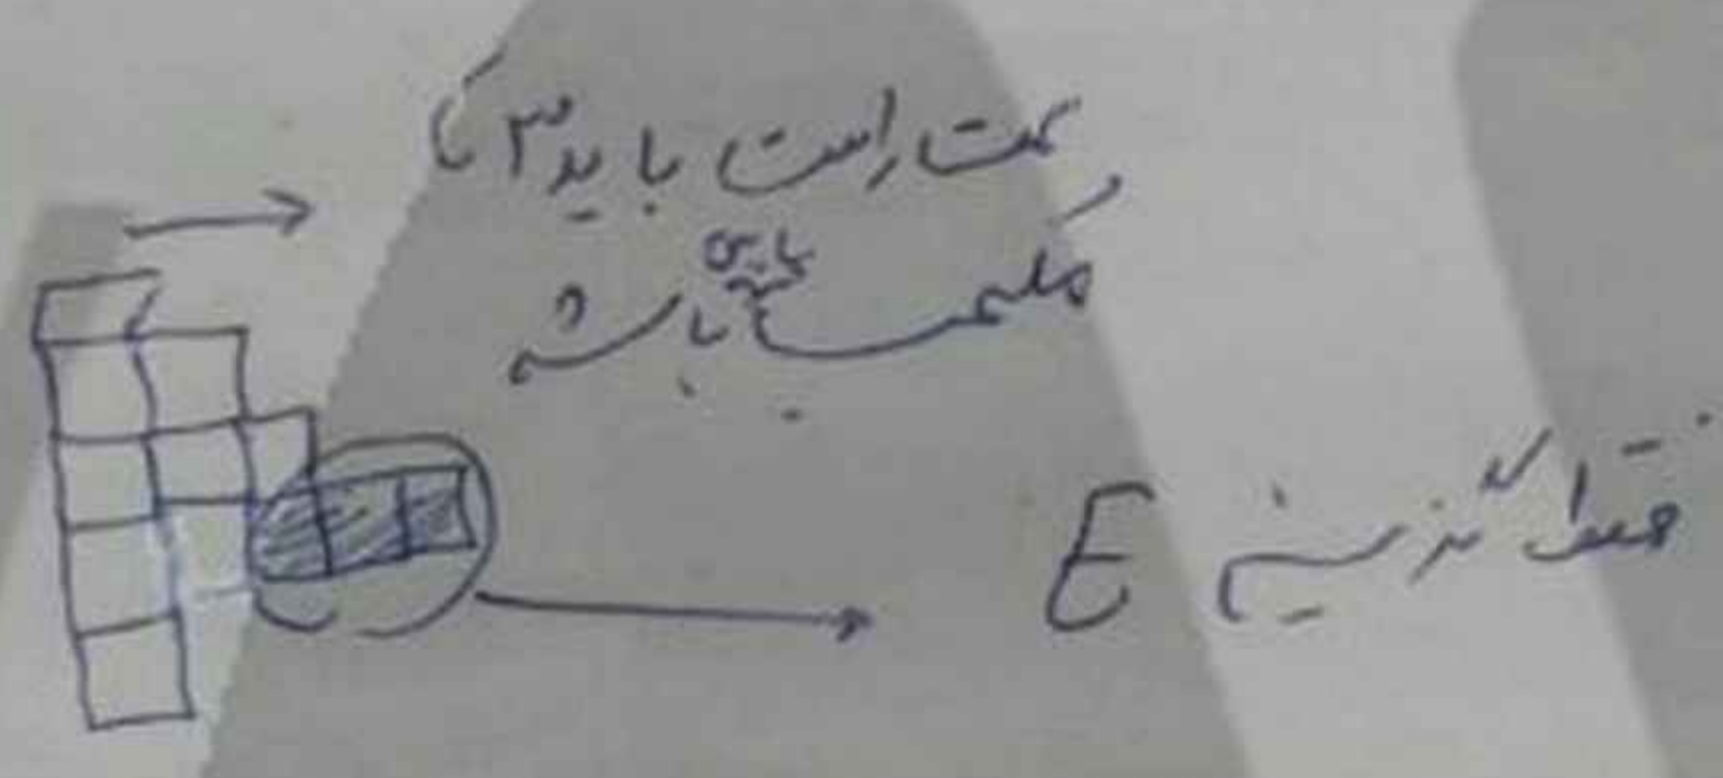 سمت راست باید ۳ تا
مکعب پایین باشه
فقط گزینه E